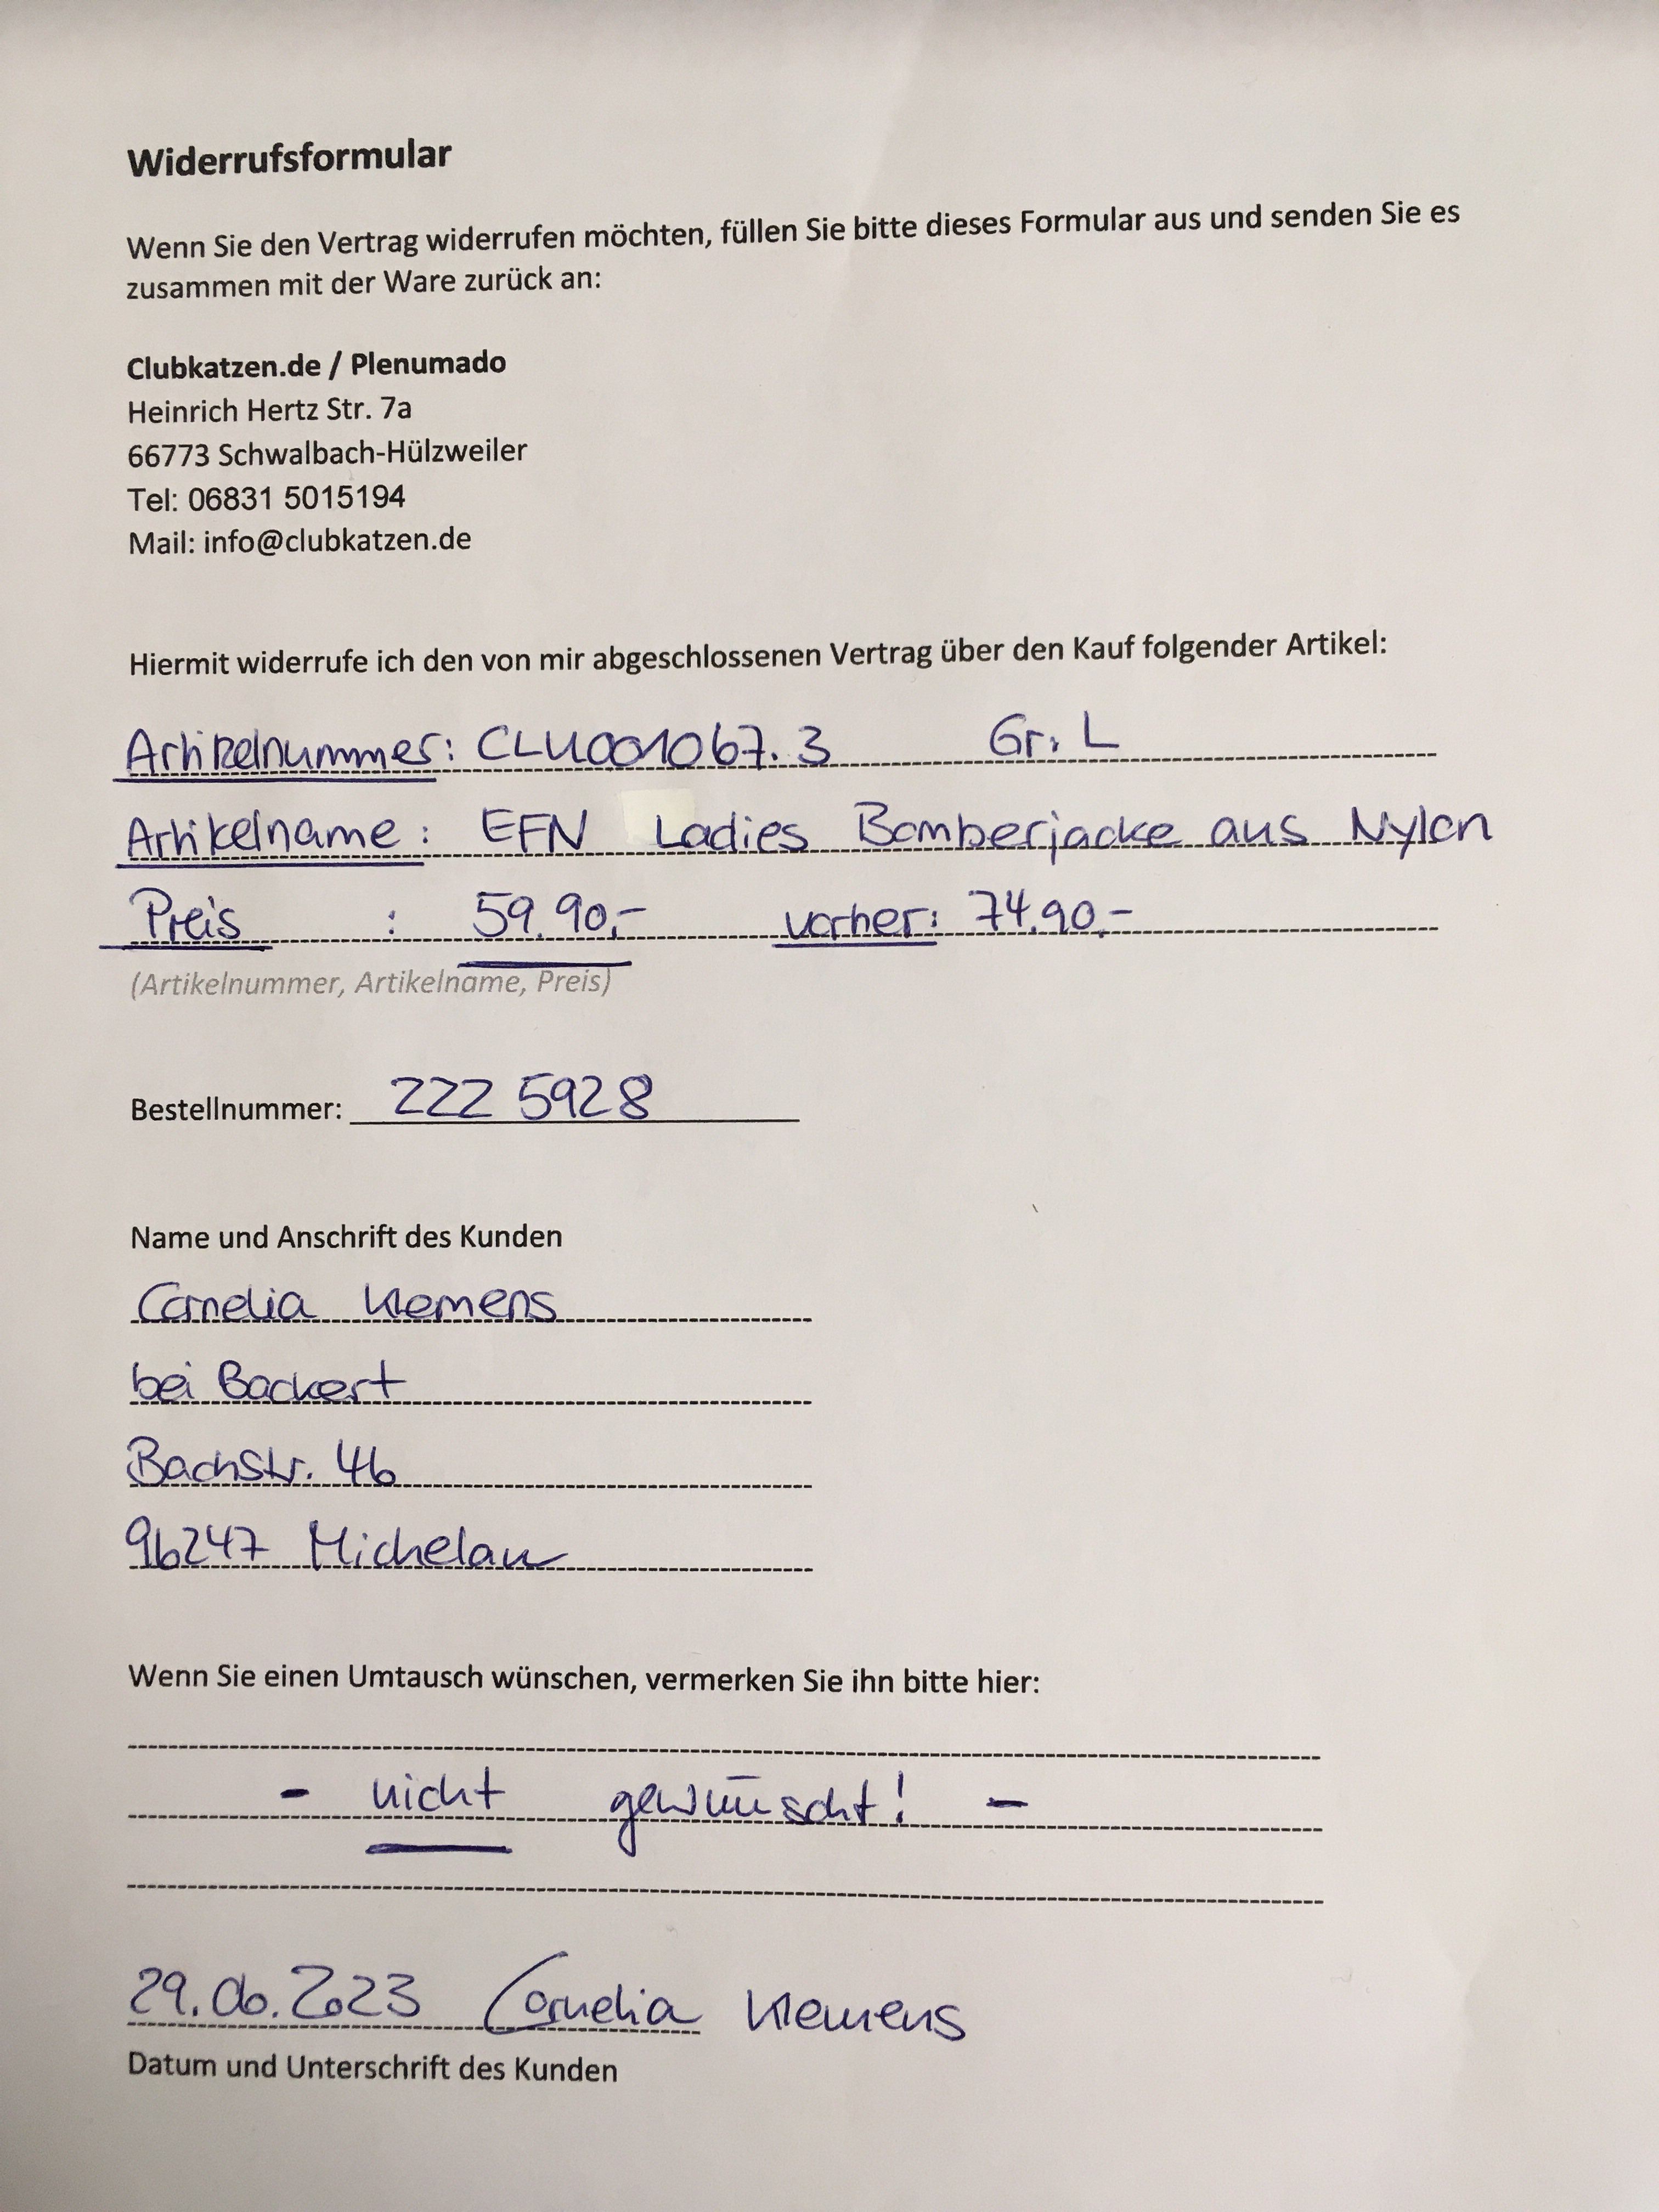 Widerrufsformular
Wenn Sie den Vertrag widerrufen möchten, füllen Sie bitte dieses Formular aus und senden Sie es
zusammen mit der Ware zurück an:
Clubkatzen.de / Plenumado
Heinrich Hertz Str. 7a
66773 Schwalbach-Hülzweiler
Tel: 06831 5015194
Mail: info@clubkatzen.de
Hiermit widerrufe ich den von mir abgeschlossenen Vertrag über den Kauf folgender Artikel:
Artikelnummer: CLU001067.3 Gr. L
Artikelname: EFN Ladies Bomberjacke aus Nylon
Preis : 59.90,- vorher: 74.90,-
(Artikelnummer, Artikelname, Preis)
Bestellnummer: 222 5928
Name und Anschrift des Kunden
Cornelia Klemens
bei Backert
Bachstr. 46
96247 Michelau
Wenn Sie einen Umtausch wünschen, vermerken Sie ihn bitte hier:
- nicht gewünscht! -
29.06.2023 Cornelia Klemens
Datum und Unterschrift des Kunden